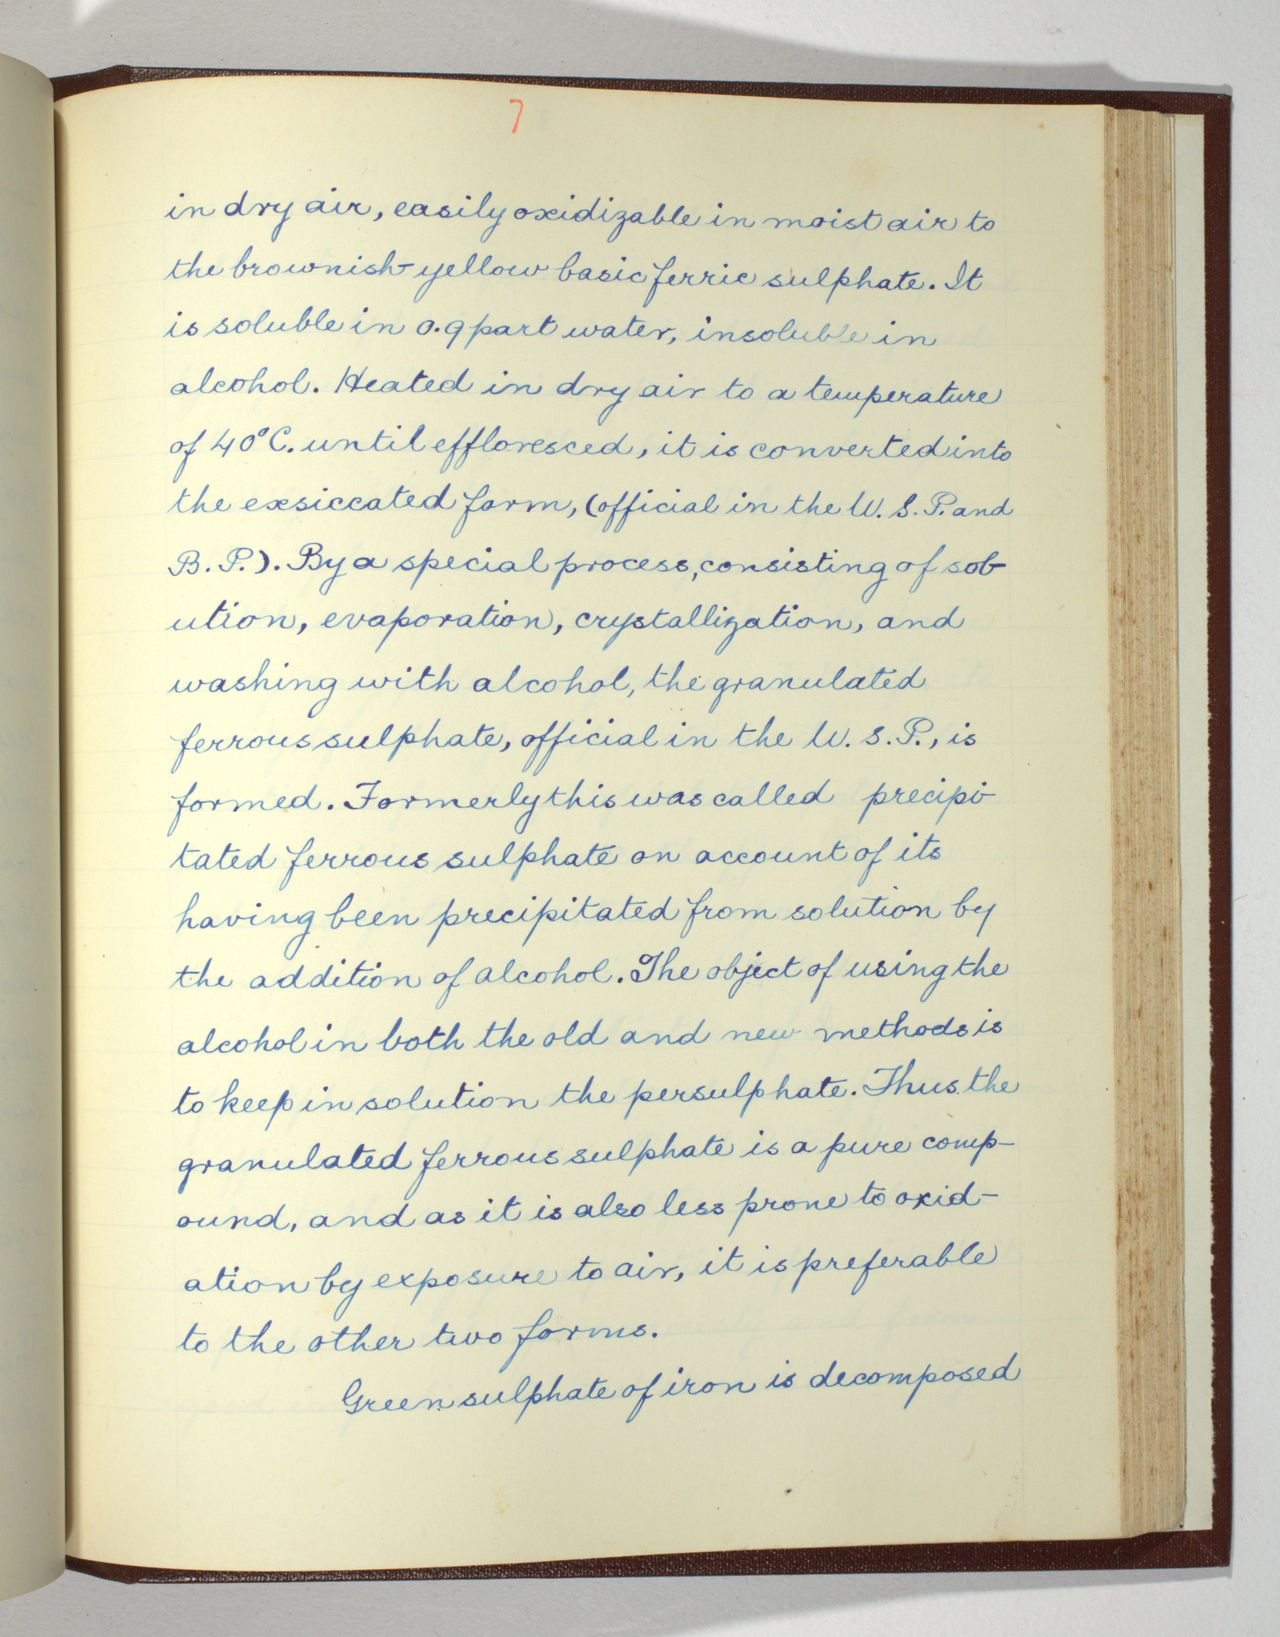 7
in dry air, easily oxidizable in moist air to
the brownish-yellow basic ferric sulphate. It
is soluble in 0.9 part water, insoluble in
alcohol. Heated in dry air to a temperature
of 40°C. until effloresced, it is converted into
the exsiccated form, (official in the U. S. P. and
B. P.). By a special process, consisting of sol-
ution, evaporation, crystallization, and
washing with alcohol, the granulated
ferrous sulphate, official in the U. S. P., is
formed. Formerly this was called precipi-
tated ferrous sulphate on account of its
having been precipitated from solution by
the addition of alcohol. The object of using the
alcohol in both the old and new methods is
to keep in solution the persulphate. Thus the
granulated ferrous sulphate is a pure comp-
ound, and as it is also less prone to oxid-
ation by exposure to air, it is preferable
to the other two forms.
Green sulphate of iron is decomposed